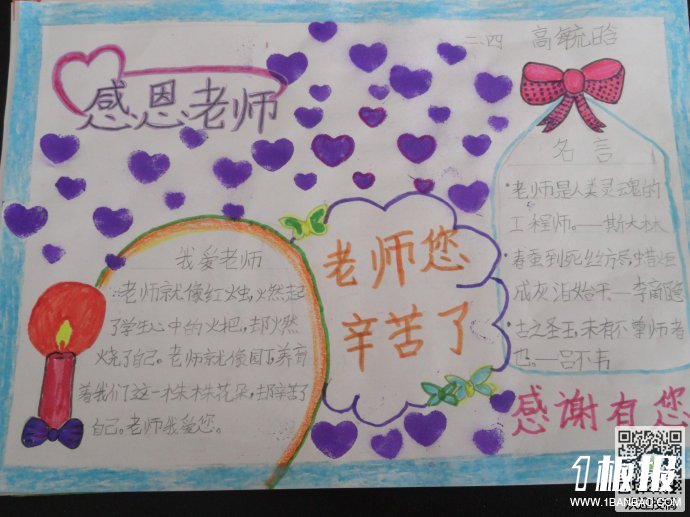 二、四 高毓晗
感恩老师
我爱老师
老师就像红烛,燃起
了学生心中的火把,却燃
烧了自己。老师就像园丁,养育
着我们这一株株花朵,却辛苦了
自己。老师我爱您。
老师您
辛苦了
名言
·老师是人类灵魂的
工程师。——斯大林
·春蚕到死丝方尽,蜡炬
成灰泪始干——李商隐
·古之圣王,未有不尊师者
也。——吕不韦
感谢有您
1板报
WWW.1BANBAO.COM